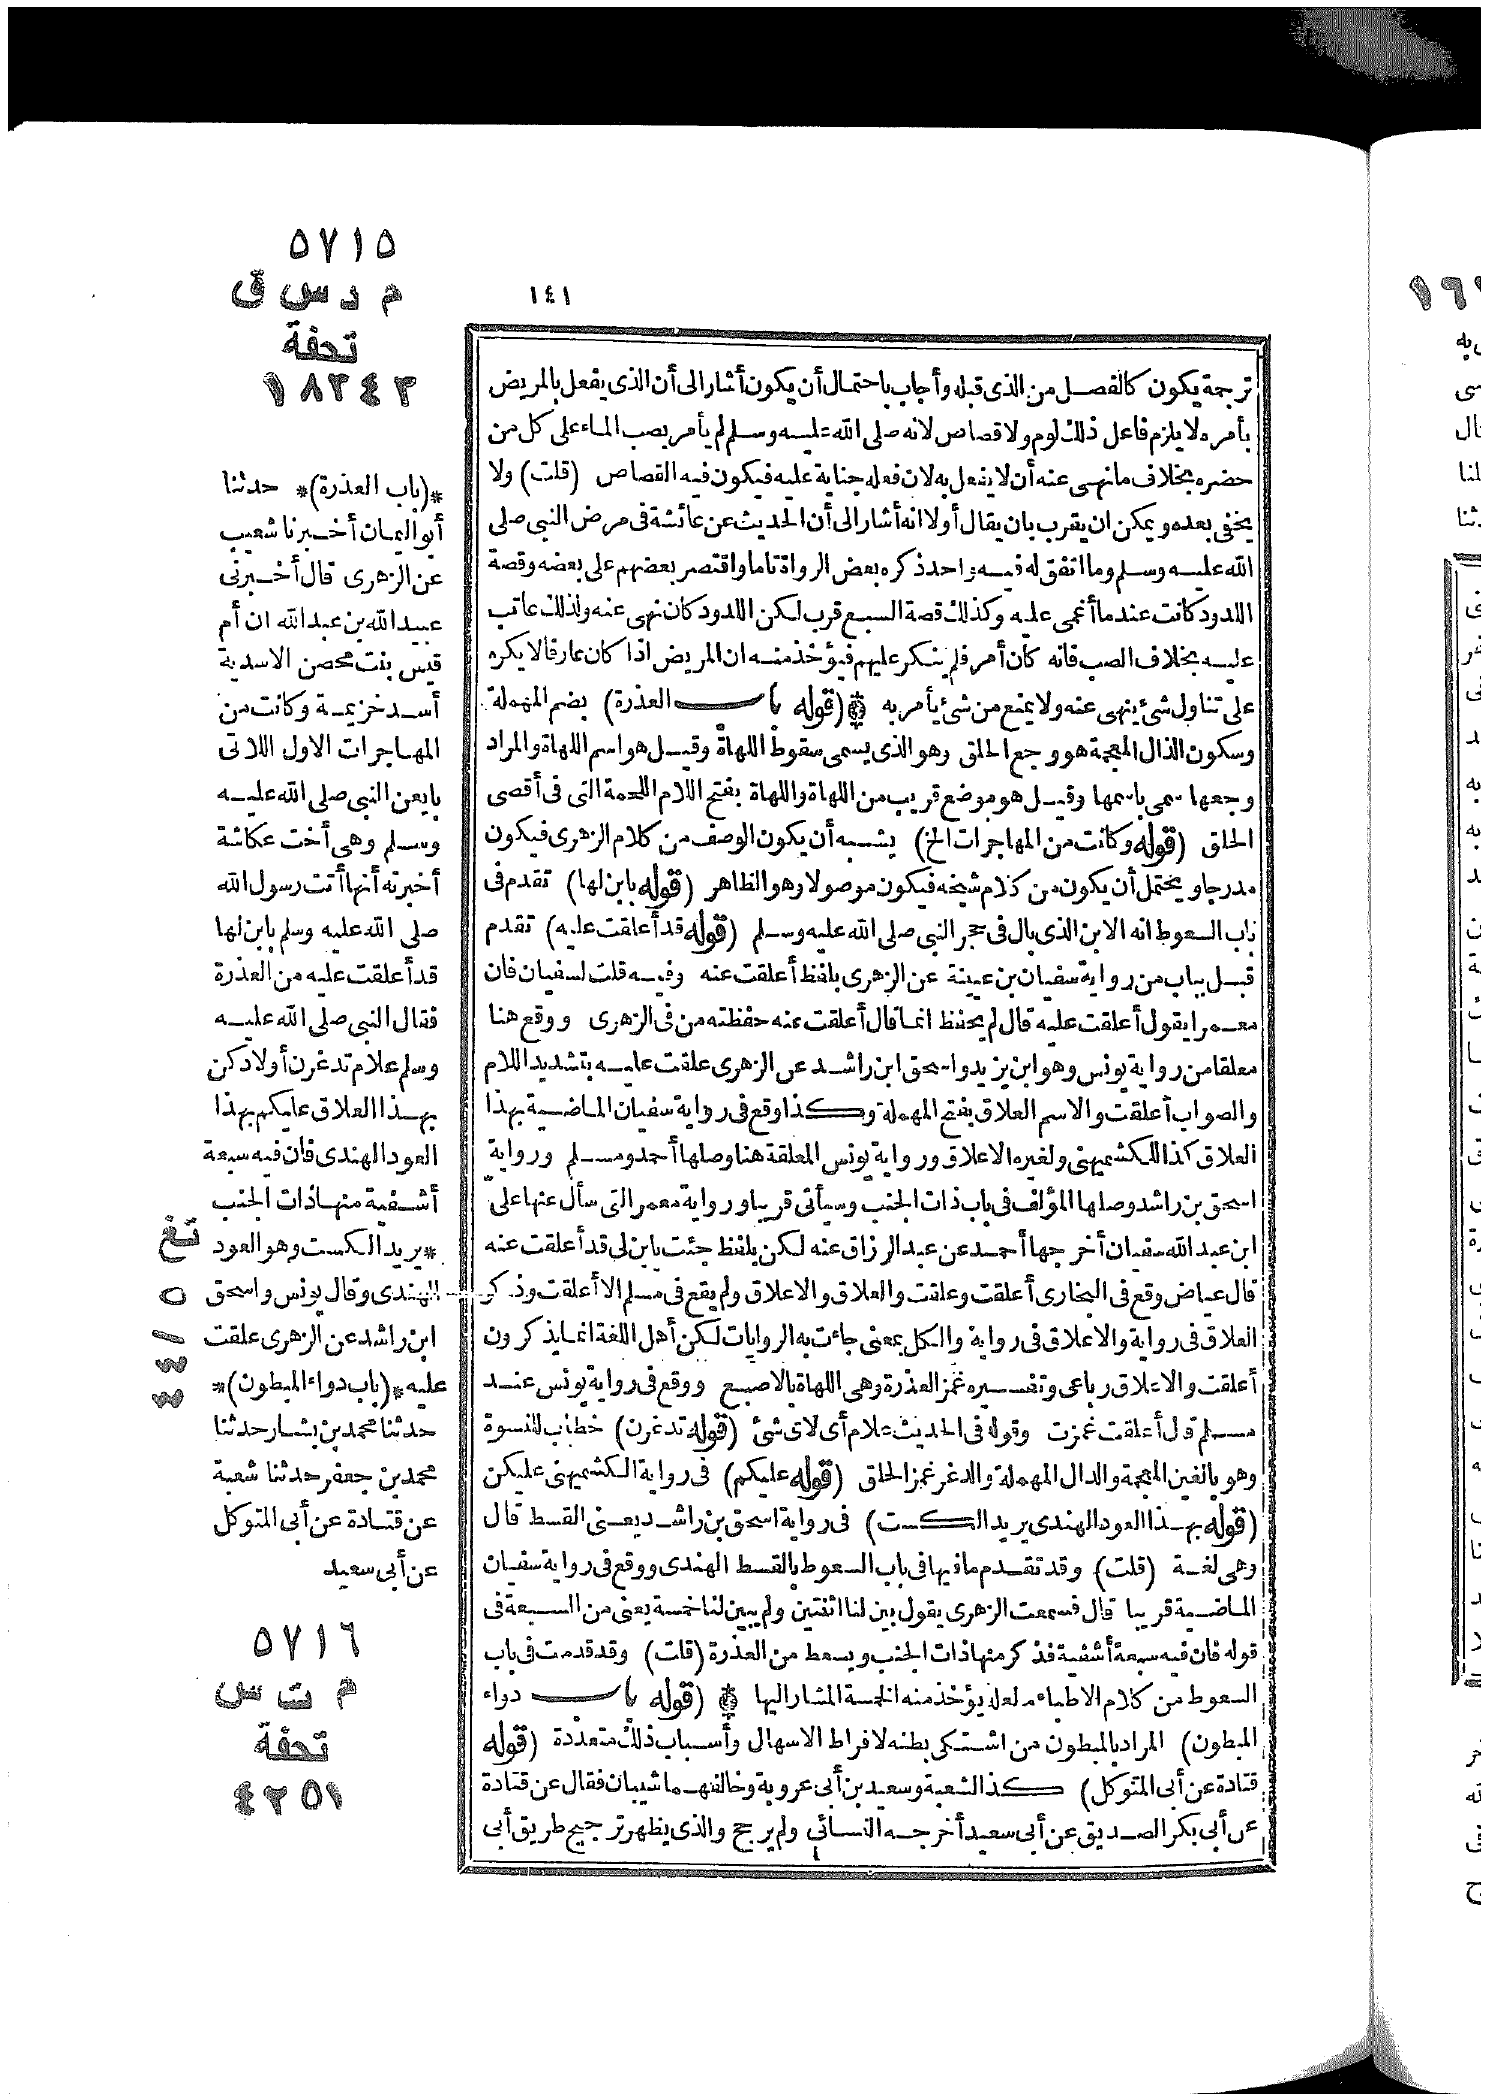 ١٤١
ترجمة يكون كالفصل من الذى قبله وأجاب باحتمال أن يكون أشار الى أن الذى يفعل بالمريض
بأمره لا يلزم فاعل ذلك لوم ولا قصاص لانه صلى الله عليه وسلم لم يأمر بصب الماء على كل من
حضره بخلاف ما نهى عنه أن لا يفعل به لان فعله جناية عليه فيكون فيه القصاص (قلت) ولا
يخفى بعده ويمكن ان يقرب بان يقال أولا انه أشار الى أن الحديث عن عائشة فى مرض النبى صلى
الله عليه وسلم وما اتفق له فيه واحد ذكره بعض الرواة تاما واقتصر بعضهم على بعضه وقصة
اللدود كانت عندما أغمى عليه وكذلك قصة السبع قرب لكن اللدود كان نهى عنه ولذلك عاتب
عليه بخلاف الصب فانه كان أمر فلم ينكر عليهم فيؤخذ منه ان المريض اذا كان عارفا لا يكره
على تناول شئ ينهى عنه ولا يمنع من شئ يأمر به (قوله باب العذرة) بضم المهملة
وسكون الذال المعجمة هو وجع الحلق وهو الذى يسمى سقوط اللهاة وقيل هو اسم اللهاة والمراد
وجعها سمى باسمها وقيل هو موضع قريب من اللهاة واللهاة بفتح اللام اللحمة التى فى أقصى
الحلق (قوله وكانت من المهاجرات الخ) يشبه أن يكون الوصف من كلام الزهرى فيكون
مدرجا ويحتمل أن يكون من كلام شيخه فيكون موصولا وهو الظاهر (قوله بابن لها) تقدم فى
باب السعوط انه الابن الذى بال فى حجر النبى صلى الله عليه وسلم (قوله قد أعلقت عليه) تقدم
قبل بباب من رواية سفيان بن عيينة عن الزهرى بلفظ أعلقت عنه وفيه قلت لسفيان فان
معمرا يقول أعلقت عليه قال لم يحفظ انما قال أعلقت عنه حفظته من فى الزهرى ووقع هنا
معلقا من رواية يونس وهو ابن يزيد واسحق ابن راشد عن الزهرى علقت عليه بتشديد اللام
والصواب أعلقت والاسم العلاق بفتح المهملة وكذا وقع فى رواية سفيان الماضية بهذا
العلاق كذا للكشميهنى ولغيره الاعلاق ورواية يونس المعلقة هنا وصلها أحمد ومسلم ورواية
اسحق بن راشد وصلها المؤلف فى باب ذات الجنب وسيأتى قريبا ورواية معمر التى سأل عنها على
ابن عبد الله سفيان أخرجها أحمد عن عبد الرزاق عنه لكن بلفظ جئت بابن لى قد أعلقت عنه
قال عياض وقع فى البخارى أعلقت وعلقت والعلاق والاعلاق ولم يقع فى مسلم الا أعلقت وذكر
العلاق فى رواية والاعلاق فى رواية والكل بمعنى جاءت به الروايات لكن أهل اللغة انما يذكرون
أعلقت والاعلاق رباعى وتفسيره غمز العذرة وهى اللهاة بالاصبع ووقع فى رواية يونس عند
مسلم قال أعلقت غمزت وقوله فى الحديث علام أى لاى شئ (قوله تدغرن) خطاب للنسوة
وهو بالغين المعجمة والدال المهملة والدغر غمز الحلق (قوله عليكم) فى رواية الكشميهنى عليكن
(قوله بهذا العود الهندى يريد الكست) فى رواية اسحق بن راشد يعنى القسط قال
وهى لغة (قلت) وقد تقدم ما فيها فى باب السعوط بالقسط الهندى ووقع فى رواية سفيان
الماضية قريبا قال فسمعت الزهرى يقول بين لنا اثنتين ولم يبين لنا خمسة يعنى من السبعة فى
قوله فان فيه سبعة أشفية فذكر منها ذات الجنب ويسعط من العذرة (قلت) وقد قدمت فى باب
السعوط من كلام الاطباء ما لعله يؤخذ منه الخمسة المشار اليها (قوله باب دواء
المبطون) المراد بالمبطون من اشتكى بطنه لافراط الاسهال وأسباب ذلك متعددة (قوله
قتادة عن أبى المتوكل) كذا لشعبة وسعيد بن أبى عروبة وخالفهما شيبان فقال عن قتادة
عن أبى بكر الصديق عن أبى سعيد أخرجه النسائى ولم يرجح والذى يظهر ترجيح طريق أبى
٥٧١٥
م د س ق
تحفة
١٨٣٤٣
*(باب العذرة)* حدثنا
أبو اليمان أخبرنا شعيب
عن الزهرى قال أخبرنى
عبيد الله بن عبد الله ان أم
قيس بنت محصن الاسدية
أسد خزيمة وكانت من
المهاجرات الاول اللاتى
بايعن النبى صلى الله عليه
وسلم وهى أخت عكاشة
أخبرته أنها أتت رسول الله
صلى الله عليه وسلم بابن لها
قد أعلقت عليه من العذرة
فقال النبى صلى الله عليه
وسلم علام تدغرن أولادكن
بهذا العلاق عليكم بهذا
العود الهندى فان فيه سبعة
أشفية منها ذات الجنب
*يريد الكست وهو العود
الهندى وقال يونس واسحق
ابن راشد عن الزهرى علقت
عليه *(باب دواء المبطون)*
حدثنا محمد بن بشار حدثنا
محمد بن جعفر حدثنا شعبة
عن قتادة عن أبى المتوكل
عن أبى سعيد
تغ
٥
٥٧١٦
م ت س
تحفة
٤٢٥١